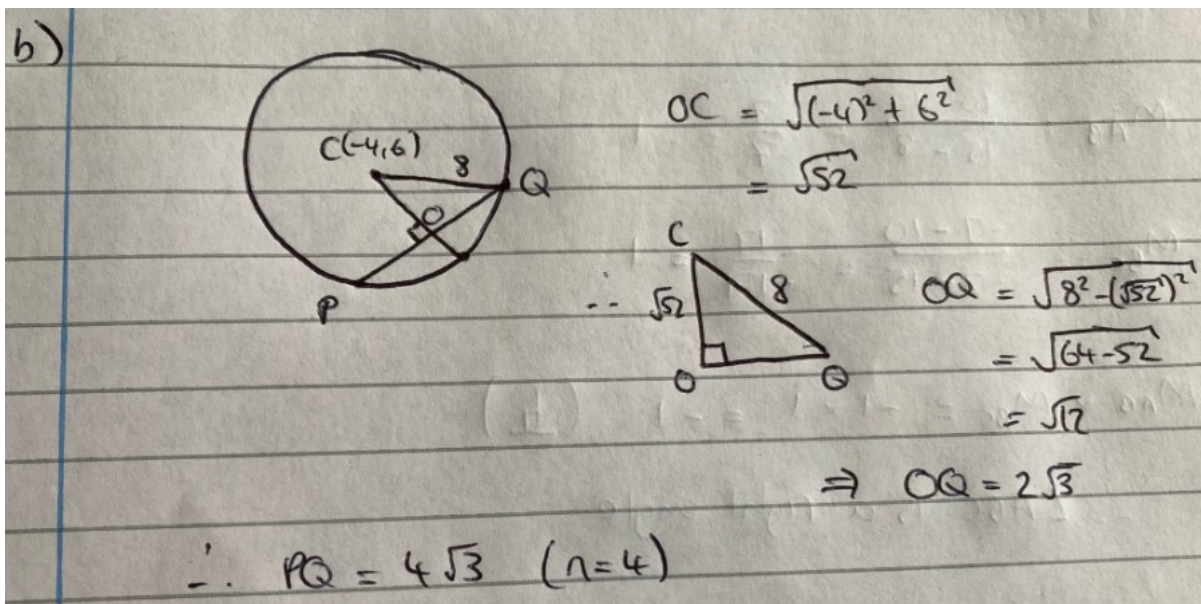 b)
C(-4,6)
8
Q
O
P
OC = √((-4)² + 6²)
= √52
∴ C
√52
8
O
Q
OQ = √(8² - (√52)²)
= √(64-52)
= √12
⇒ OQ = 2√3
∴ PQ = 4√3 (n=4)